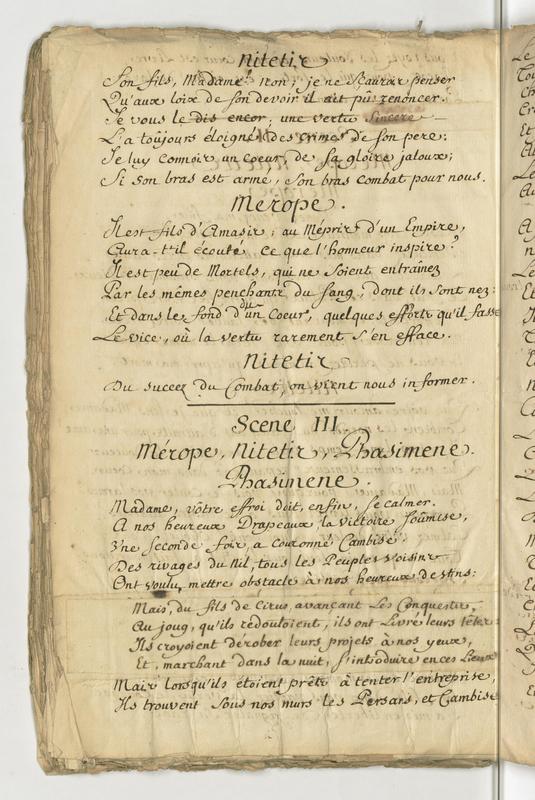 Nitetis
Son fils, Madame! Non; je ne sçaurois penser
Qu'aux loix de son devoir il ait pû renoncer.
Je vous le dis encor; une vertu sincere
L'a toûjours éloigné des crimes de son pere:
Je luy connois un coeur, de sa gloire jaloux;
Si son bras est armé, son bras combat pour nous.
Mérope.
Il est fils d'Amasis; au Mépris d'un Empire,
Aura-t'il écouté ce que l'honneur inspire?
Il est peu de Mortels, qui ne soient entraînez
Par les mêmes penchants du sang, dont ils sont nez:
Et dans le fond du Coeur, quelques efforts qu'il fasse
Le vice, où la vertu rarement s'en efface.
Nitetis
Du succez du Combat, on vient nous informer.
Scene III.
Mérope, Nitetis, Phasimene.
Phasimene.
Madame, vôtre effroi doit, enfin, se calmer.
A nos heureux Drapeaux, la victoire soûmise,
Une seconde fois, a couronné Cambise.
Des rivages du Nil, tous les Peuples voisins
Ont voulu mettre obstacle à nos heureux destins:
Mais, du fils de Cirus, avançant les Conquestes,
Au joug, qu'ils redouloient, ils ont Livré leurs têtes
Ils croyoient dérober leurs projets à nos yeux,
Et, marchant dans la nuit, s'introduire en ces Lieux
Mais lorsqu'ils étoient prêts à tenter l'entreprise,
Ils trouvent sous nos murs les Persans, et Cambise